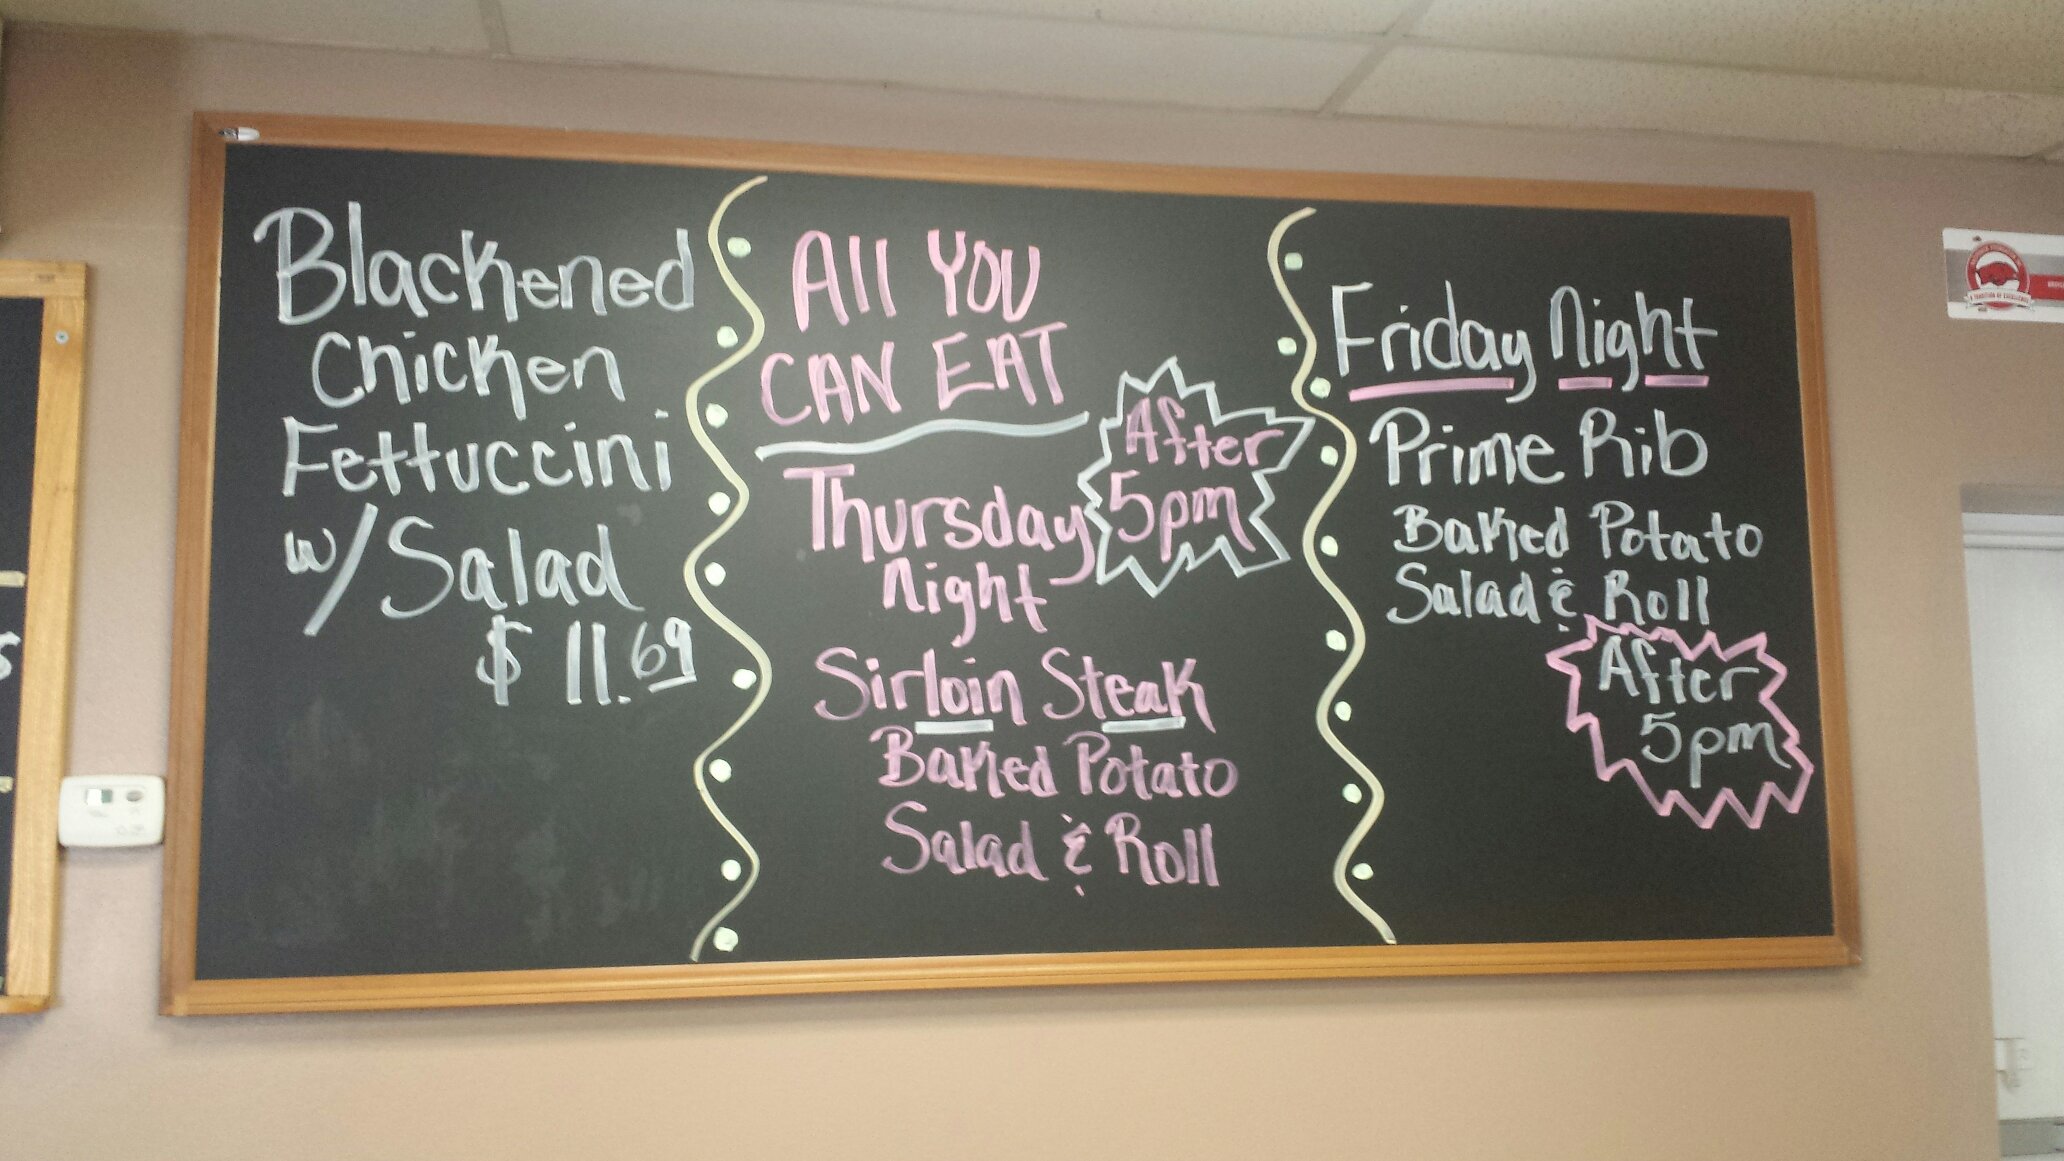 Blackened
Chicken
Fettuccini
w/Salad
$11.69
All YOU
CAN EAT
Thursday
Night
After
5pm
Sirloin Steak
Baked Potato
Salad & Roll
Friday Night
Prime Rib
Baked Potato
Salad & Roll
After
5pm
A TRADITION OF EXCELLENCE